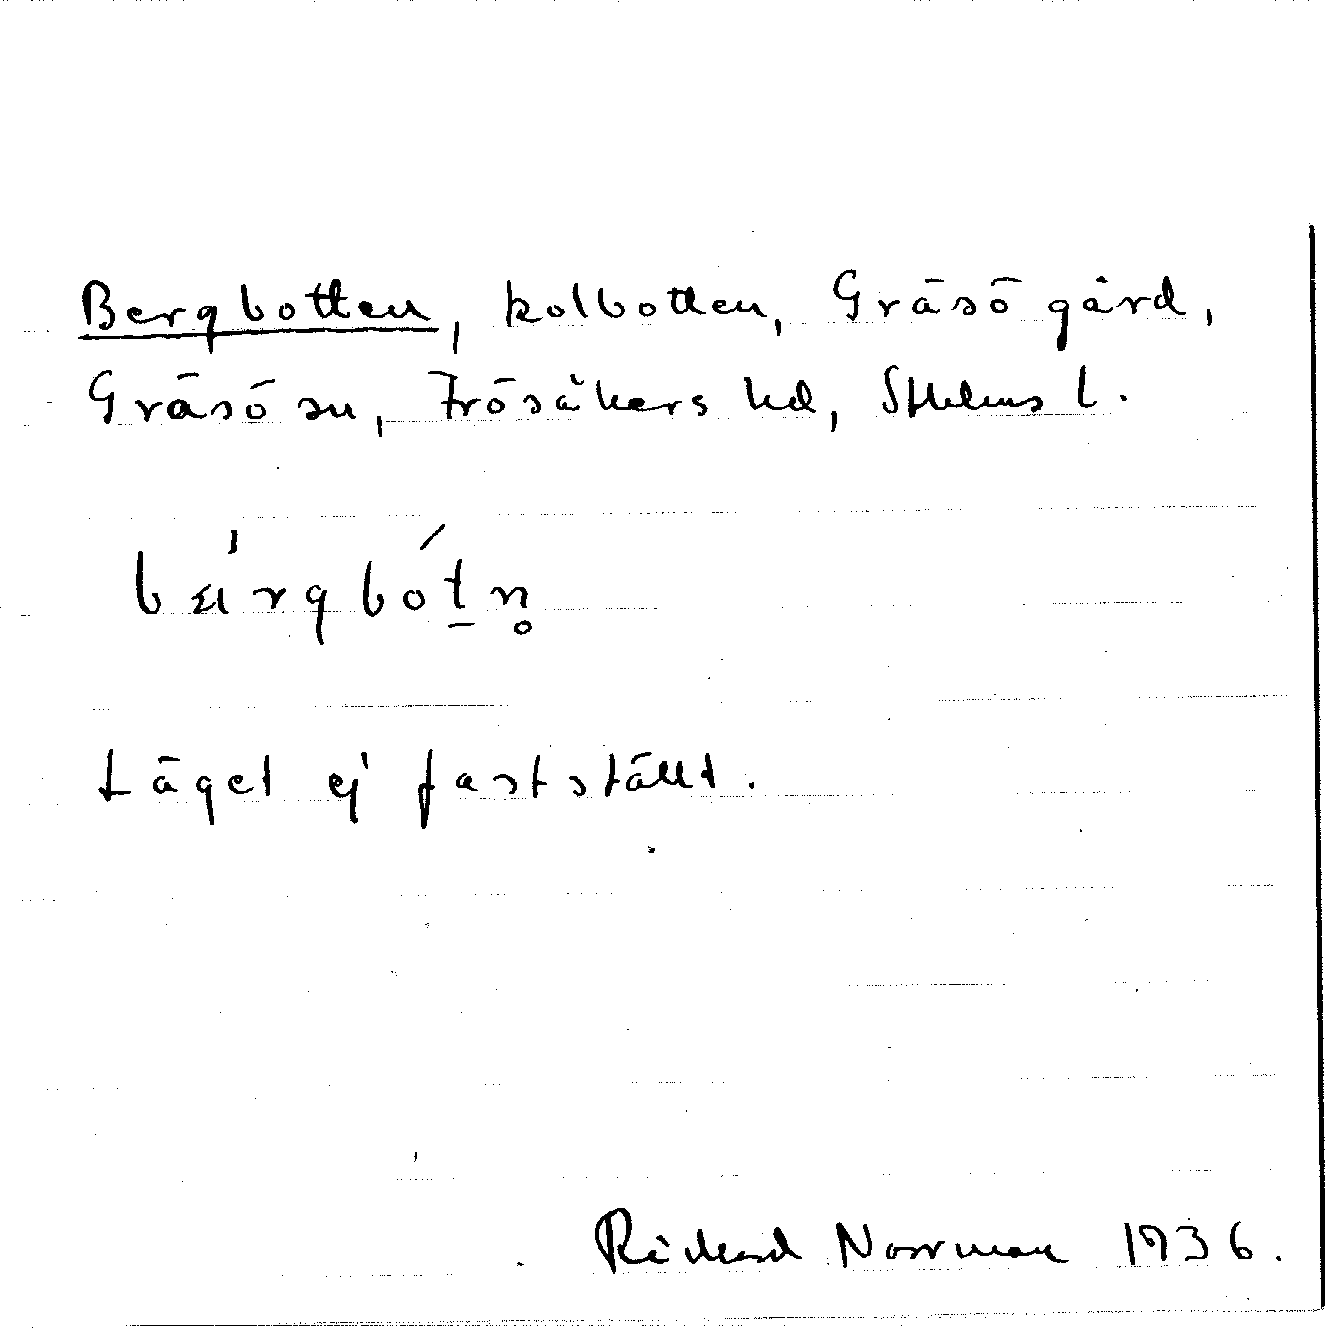 Bergbotten, kolbotten, Gräsö gård,
Gräsö sn, Frösåkers hd, Sthlms l.
Läget ej fastställt.
Rickard Norrman 1936.